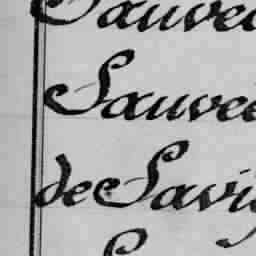 Sauve
Sauve
de Savi